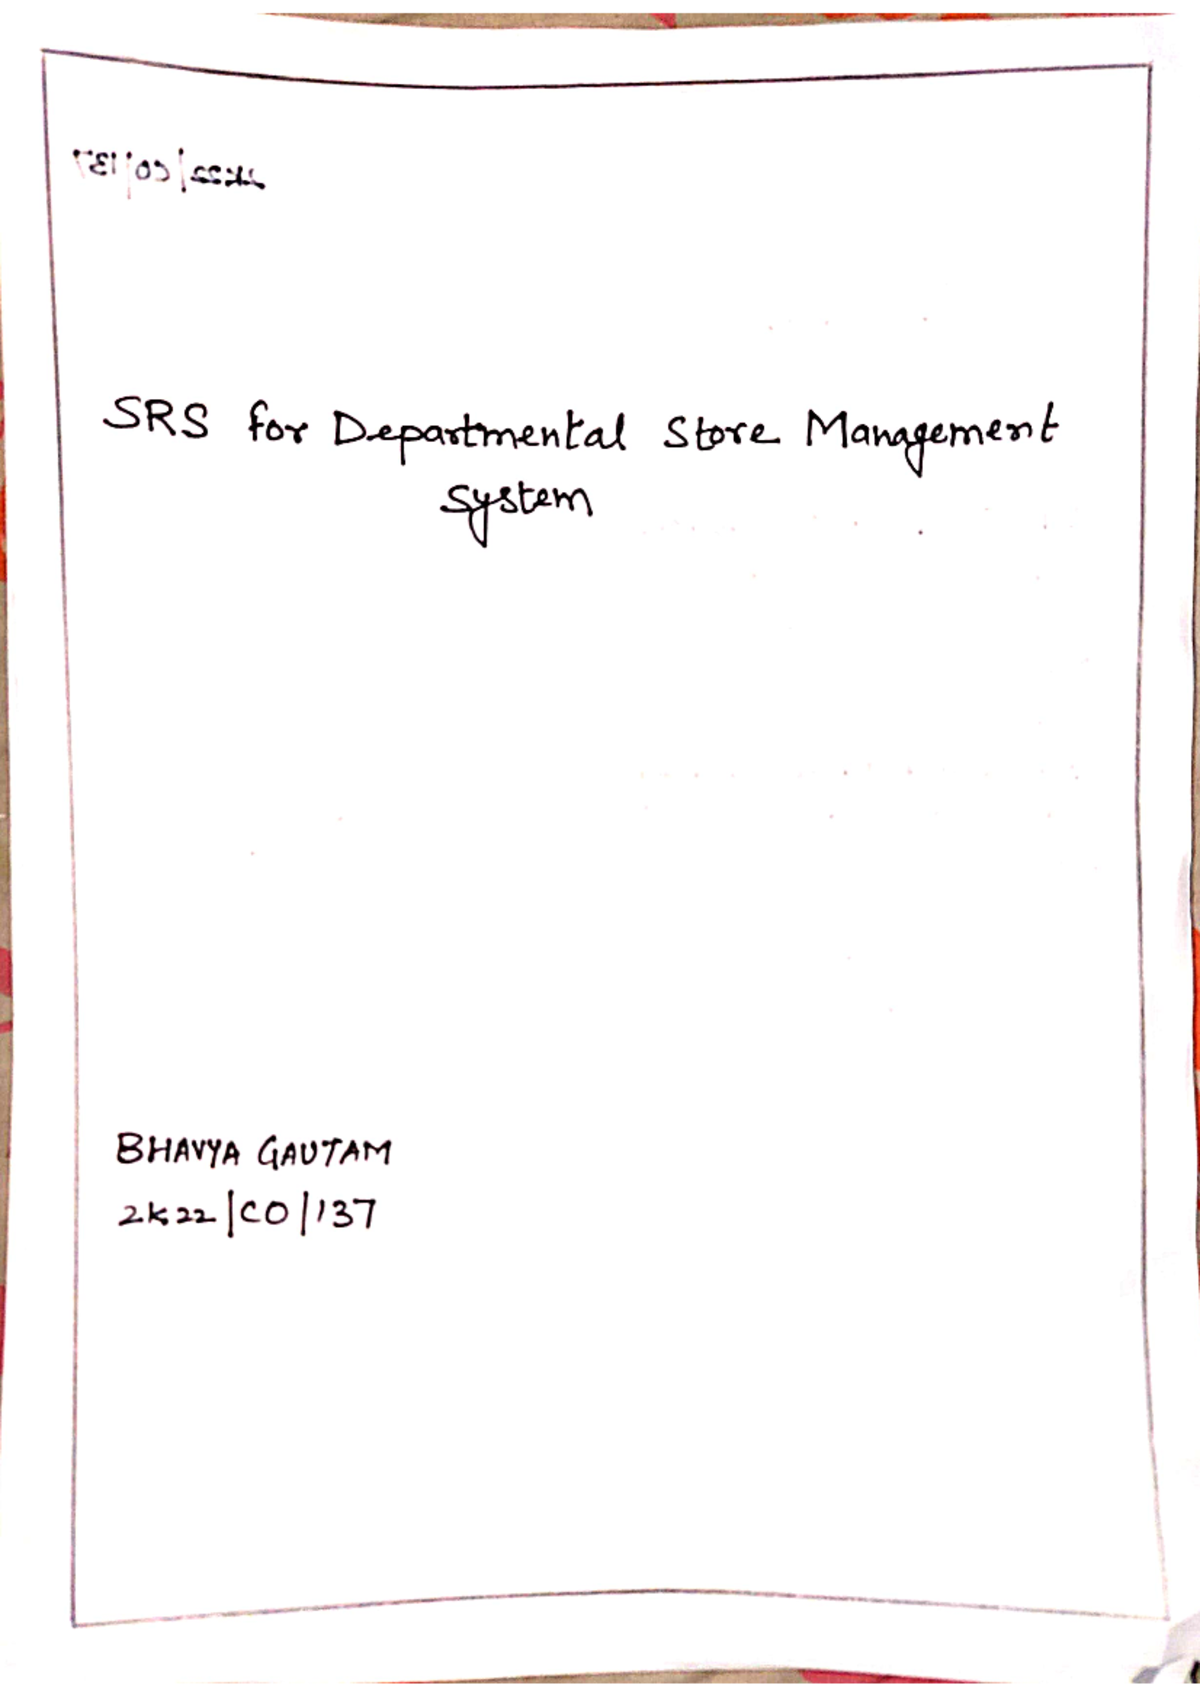 SRS for Departmental Store Management
System
BHAVYA GAUTAM
2K22/CO/137